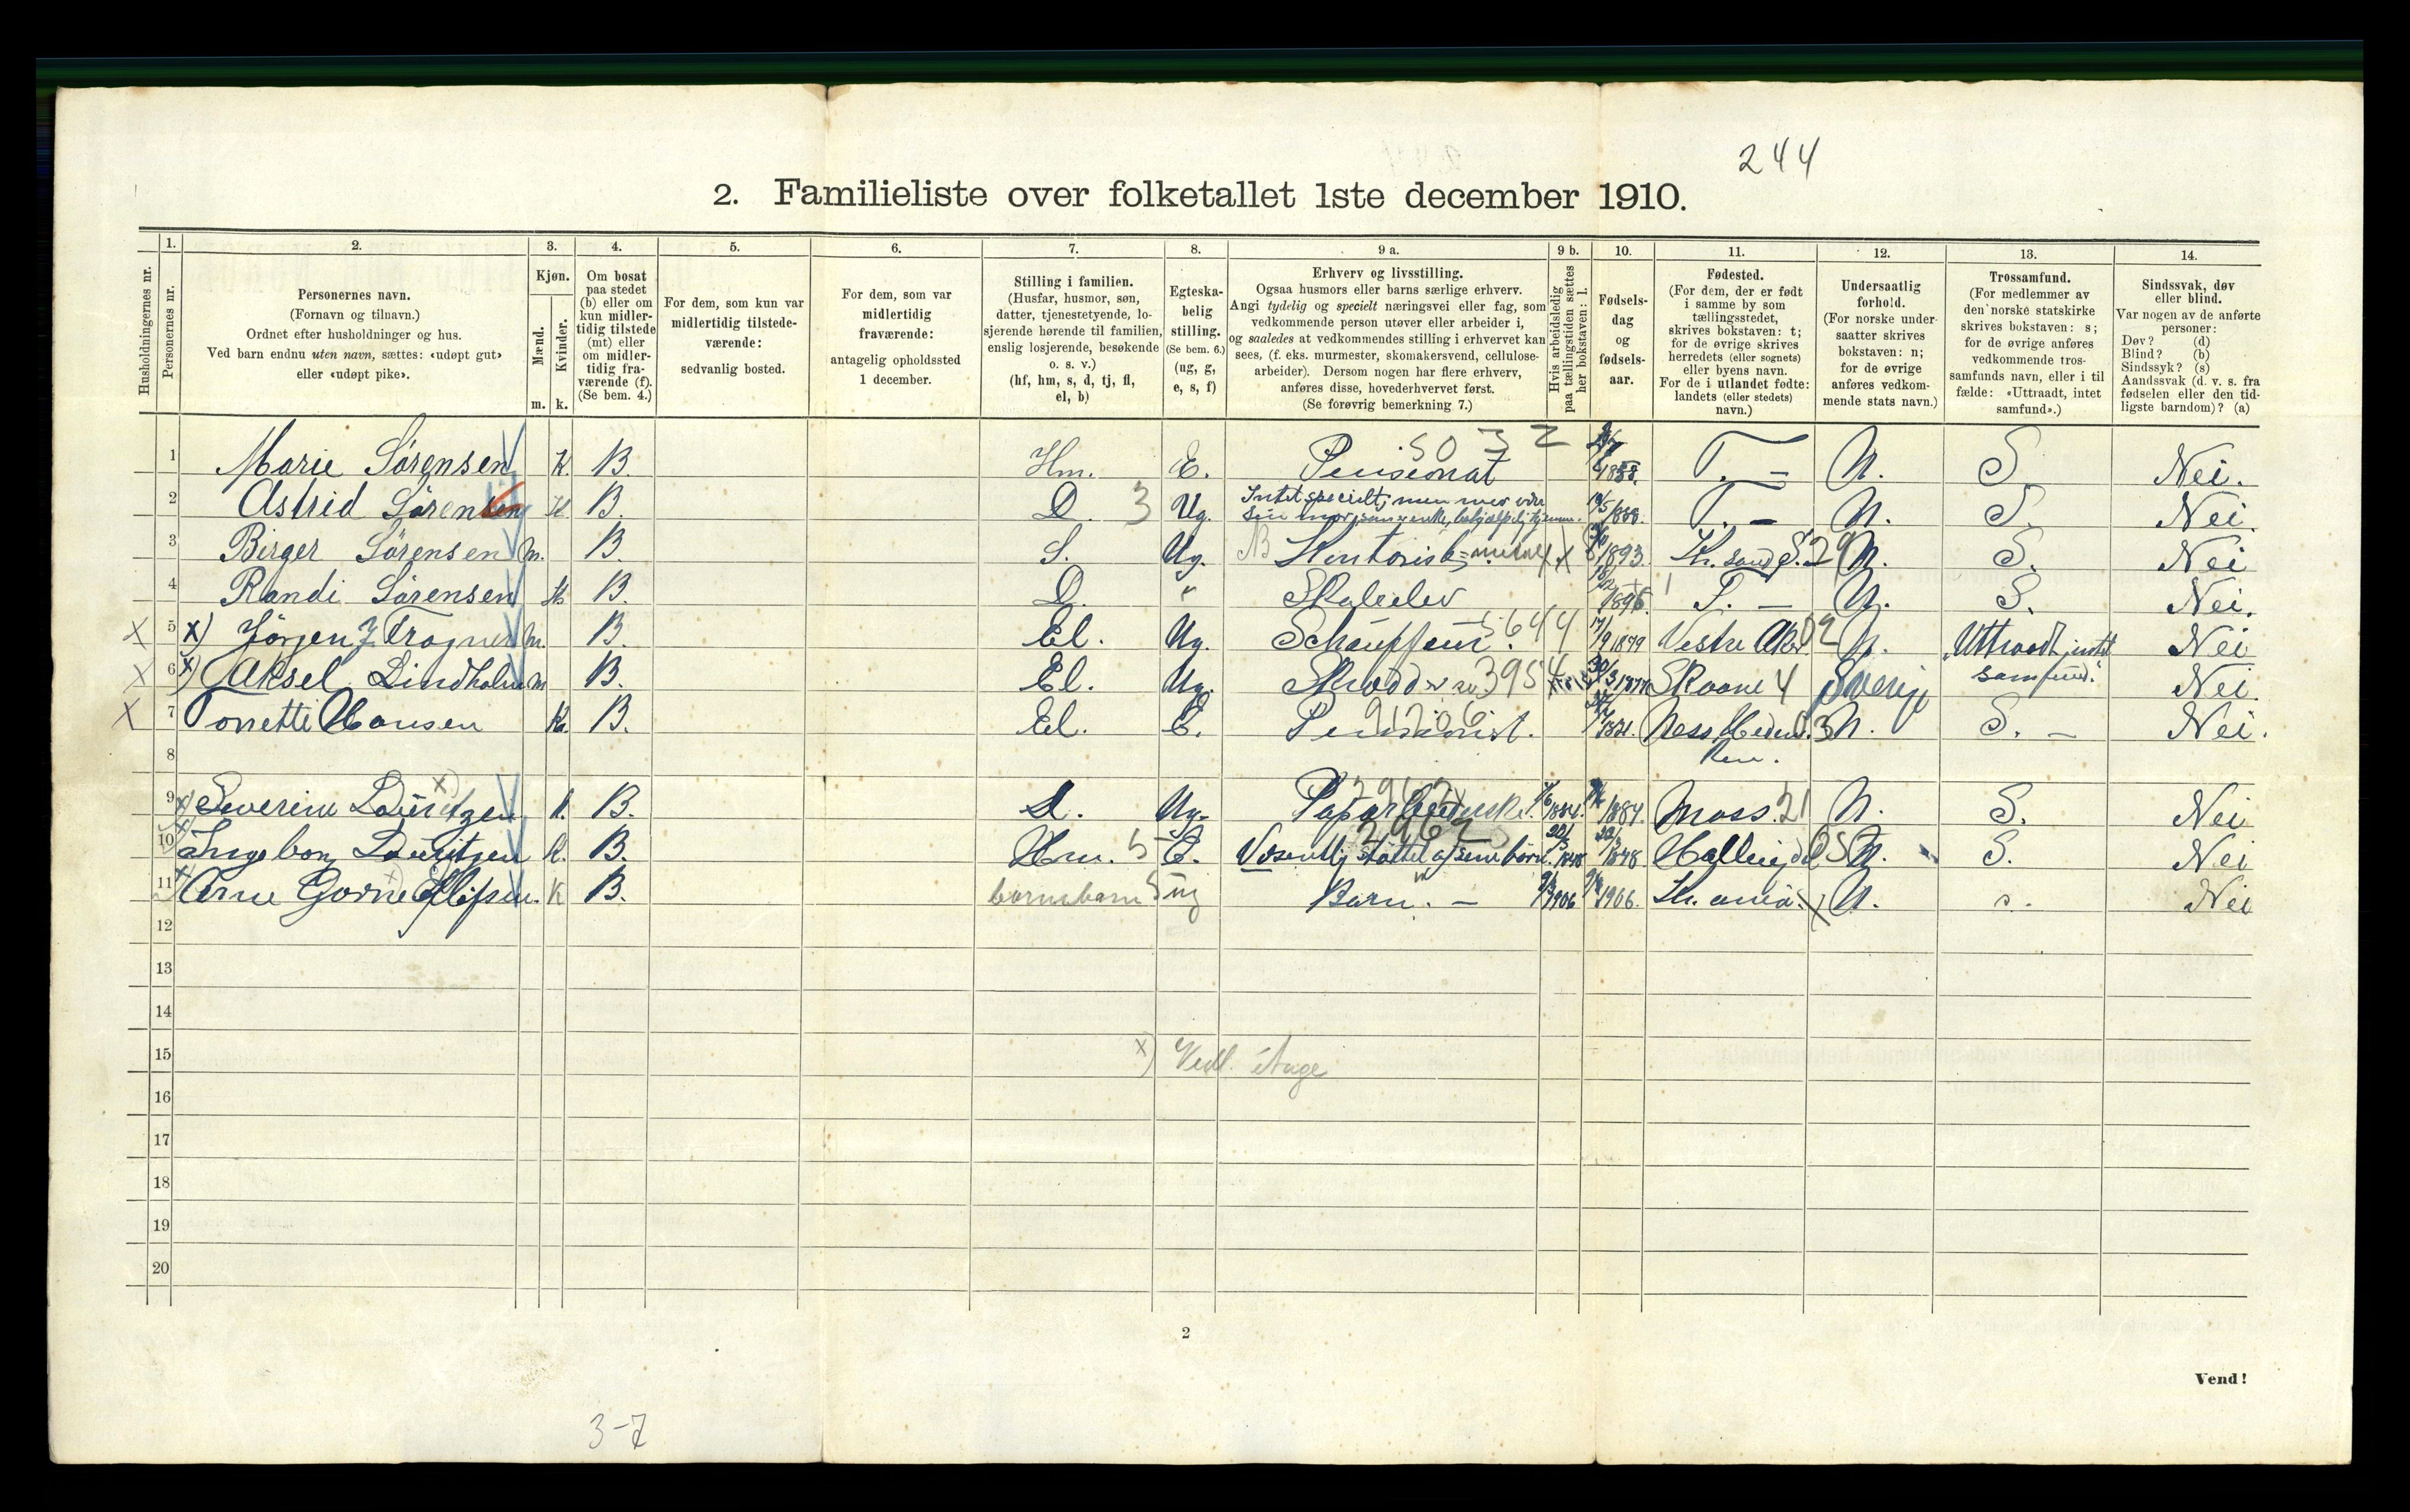 244
2. Familieliste over folketallet 1ste december 1910.
Husholdningernes nr.
1. Personernes nr.
2. Personernes navn.
(Fornavn og tilnavn.)
Ordnet efter husholdninger og hus.
Ved barn endnu uten navn, sættes: «udøpt gut»
eller «udøpt pike».
3. Kjøn.
Mænd. Kvinder.
m. k.
4. Om bosat
paa stedet
(b) eller om
kun midler-
tidig tilstede
(mt) eller
om midler-
tidig fra-
værende (f).
(Se bem. 4.)
5. For dem, som kun var
midlertidig tilstede-
værende:
sedvanlig bosted.
6. For dem, som var
midlertidig
fraværende:
antagelig opholdssted
1 december.
7. Stilling i familien.
(Husfar, husmor, søn,
datter, tjenestetyende, lo-
sjerende hørende til familien,
enslig losjerende, besøkende
o. s. v.)
(hf, hm, s, d, tj, fl,
el, b)
8. Egteska-
belig
stilling.
(Se bem. 6.)
(ug, g,
e, s, f)
9 a. Erhverv og livsstilling.
Ogsaa husmors eller barns særlige erhverv.
Angi tydelig og specielt næringsvei eller fag, som
vedkommende person utøver eller arbeider i,
og saaledes at vedkommendes stilling i erhvervet kan
sees, (f. eks. murmester, skomakersvend, cellulose-
arbeider). Dersom nogen har flere erhverv,
anføres disse, hovederhvervet først.
(Se forøvrig bemerkning 7.)
9 b. Hvis arbeidsledig
paa tællingstiden sættes
her bokstaven: l.
10. Fødsels-
dag
og
fødsels-
aar.
11. Fødested.
(For dem, der er født
i samme by som
tællingsstedet,
skrives bokstaven: t;
for de øvrige skrives
herredets (eller sognets)
eller byens navn.
For de i utlandet fødte:
landets (eller stedets)
navn.)
12. Undersaatlig
forhold.
(For norske under-
saatter skrives
bokstaven: n;
for de øvrige
anføres vedkom-
mende stats navn.)
13. Trossamfund.
(For medlemmer av
den norske statskirke
skrives bokstaven: s;
for de øvrige anføres
vedkommende tros-
samfunds navn, eller i til
fælde: «Uttraadt, intet
samfund».)
14. Sindssvak, døv
eller blind.
Var nogen av de anførte
personer:
Døv? (d)
Blind? (b)
Sindssyk? (s)
Aandssvak (d. v. s. fra
fødselen eller den tid-
ligste barndom)? (a)
1 Marie Sørensen K. B. Hm. E. Pensionat 5032 T. N. S. Nei.
2 Astrid Sørensen K B. D. 3 Ug. Intet specielt, men med sin mor, T. N. S. Nei.
3 Birger Sørensen m. B. S. Ug. Kontorist 1893. Kr. sand S. N. S. Nei
4 Randi Sørensen K B. D. " Skoleelev T. N. S. Nei.
X 5 x) Jörgen J. Tragner m. B. El. Ug. Schauffeur. 5644 17/9 1879 Vestre Aker N. Uttraadt, intet samfund. Nei
X 6 x) Aksel Lindholm m B. El. Ug. 3954 Skaane 4 Sverige Nei.
X 7 Hansen K. B. El. E. Pensionist. Ness Hedemarken. N. S. Nei.
8
9 x) Severine Lauritzen K. B. D. Ug. 1884. Moss. 21 N. S. Nei
10 x) Ingeborg Lauritzen K. B. Hm. 5 E. Væsentlig støttet af sine børn. 2962 1848 Hallingdal N. S. Nei
11 Arne K B. barnebarn 5 ug Barn. 1906 1906. Kr.ania. N. s. Nei
12
13
14
15 x) Vedl. étage
16
17
18
19
20
2
Vend!
3-7